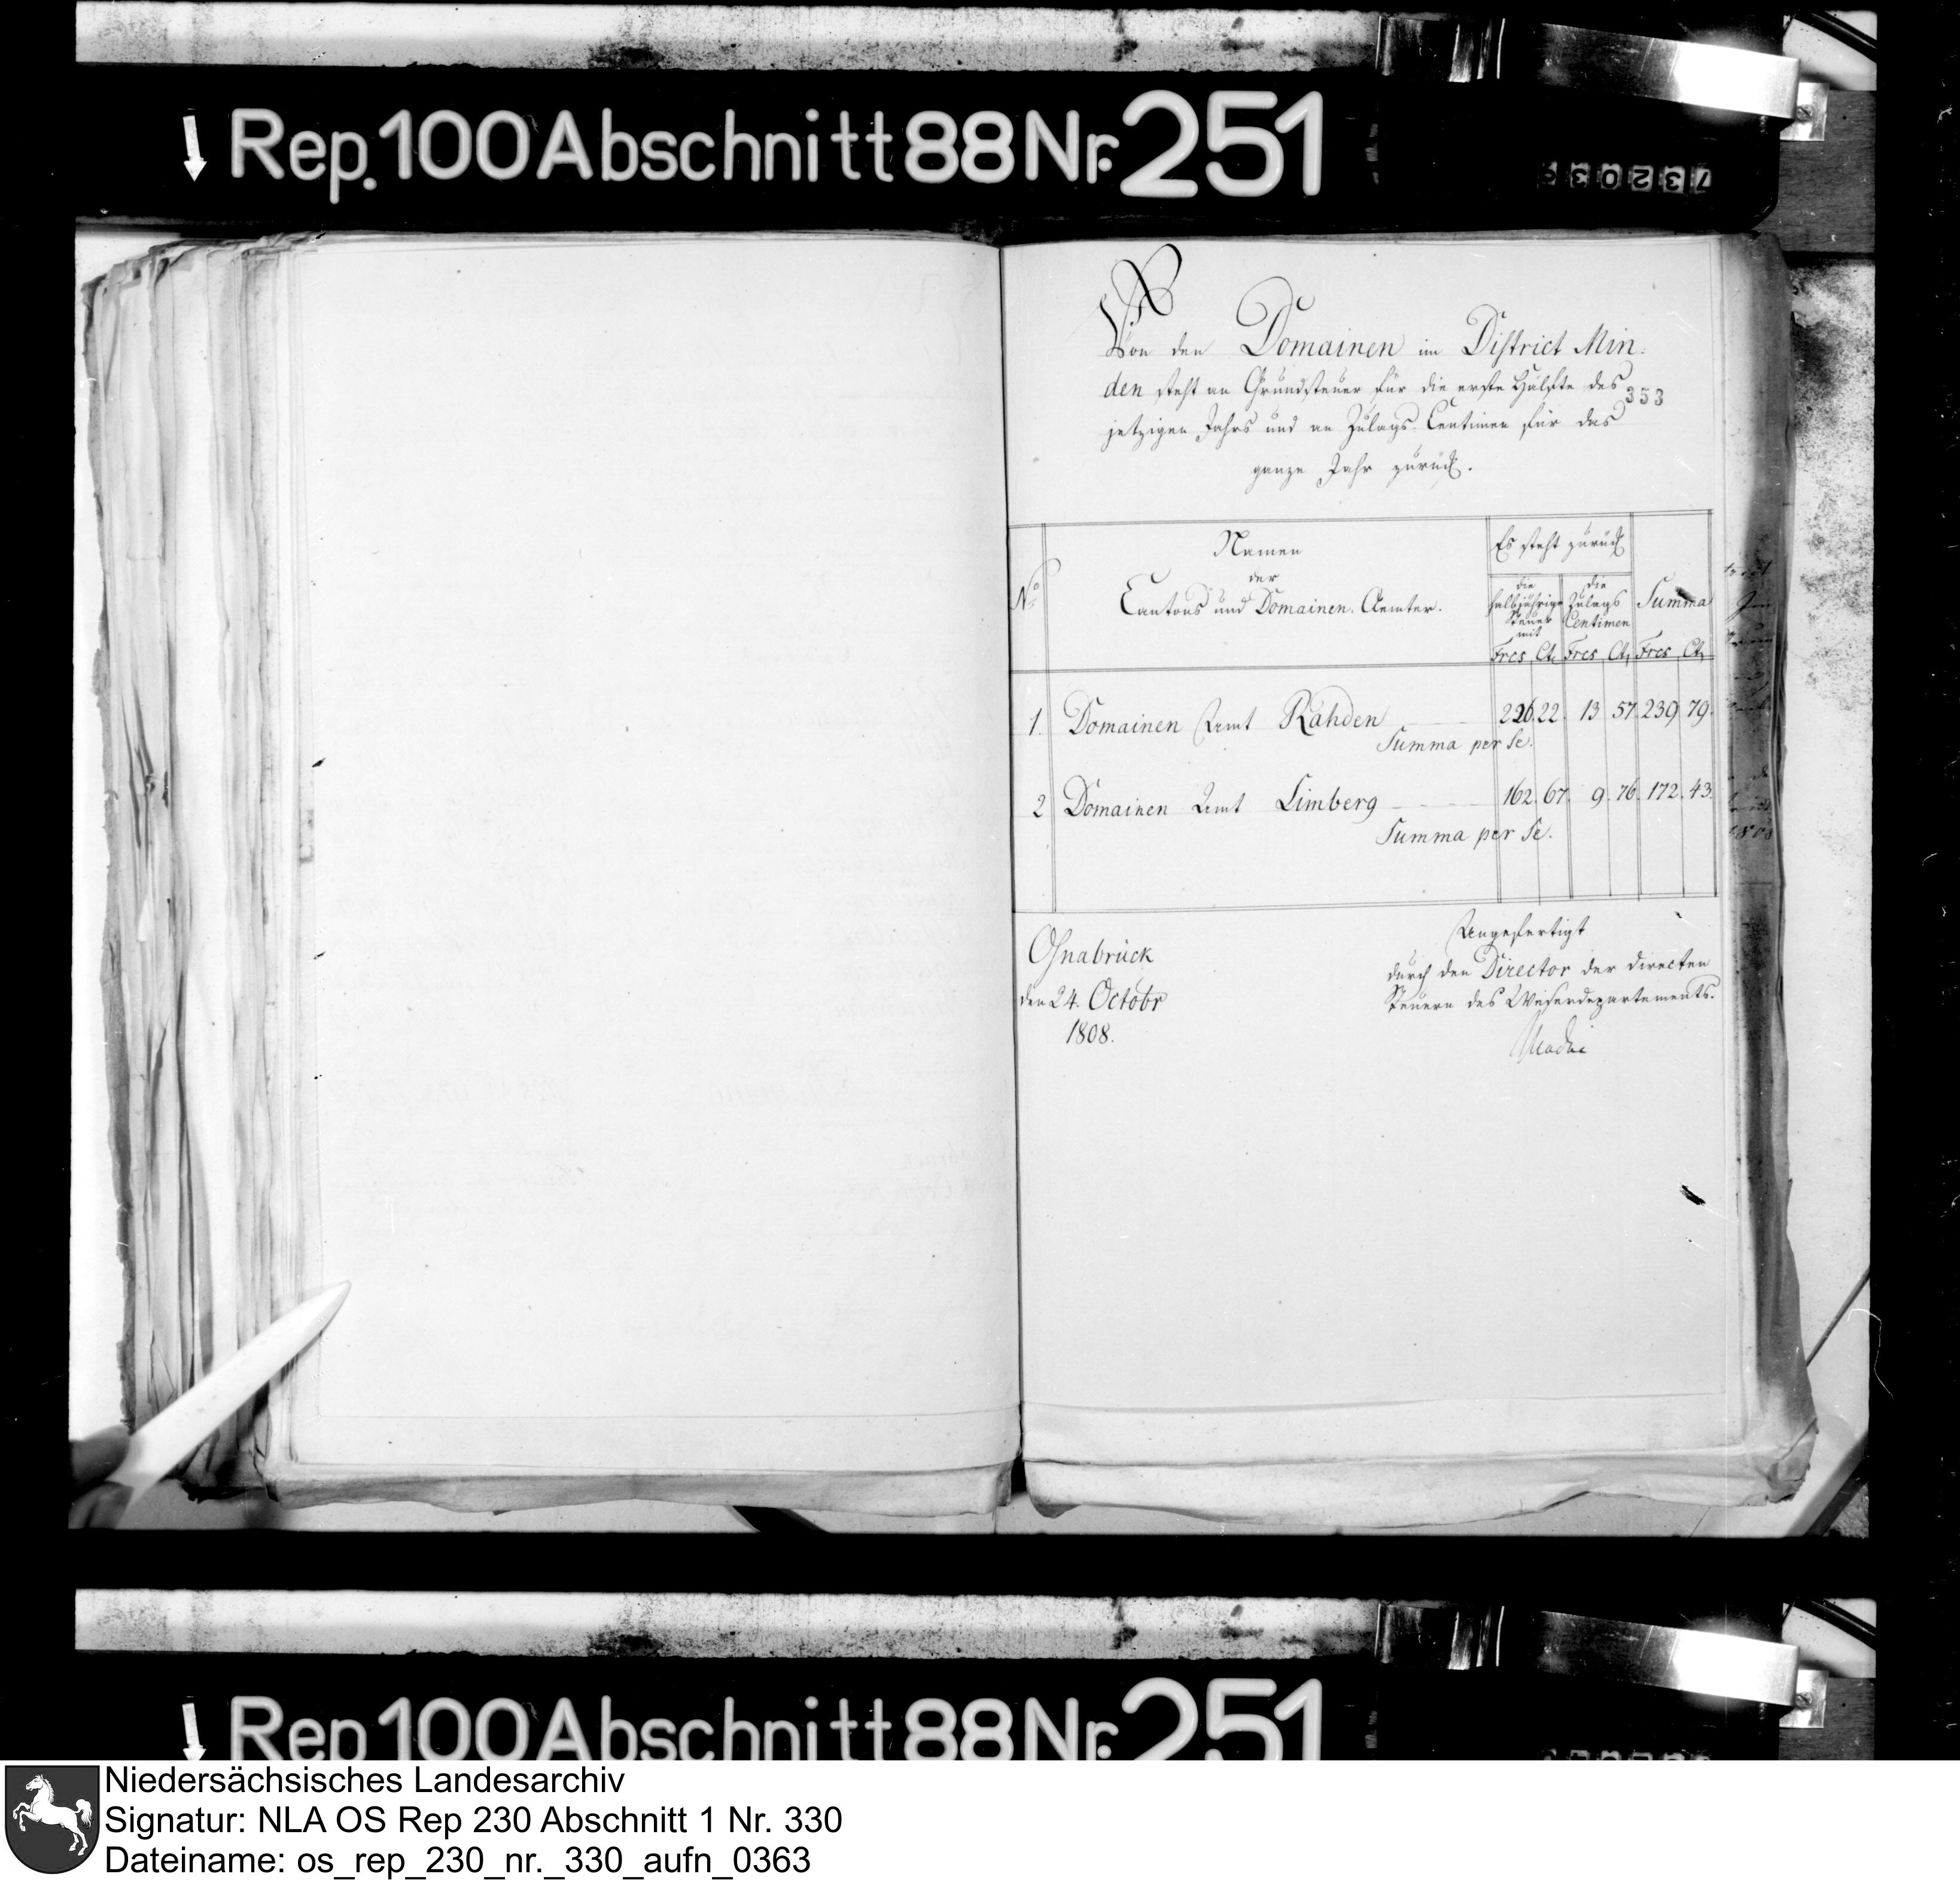 Rep. 100 Abschnitt 88 Nr. 251
732033
Von den Domainen im District Min:
den steht an Grundsteuer für die erste Hälfte des
353
jetzigen Jahrs und an Zulags Centimen für das
ganze Jahr zurück.
No
Namen
der
Cantons und Domainen. Aemter.
Es steht zurück
die halbjährige Steuer mit
die Zulags Centimen
Summa
Frcs Ct Frcs Ct Frcs Ct
1. Domainen Amt Rahden 226. 22. 13 57. 239. 79.
Summa per Se.
2 Domainen Amt Limberg 162. 67. 9. 76. 172. 43.
Summa per Se.
Osnabrück
den 24. Octobr
1808.
Angefertigt
durch den Director der directen
Steuern des Weserdepartements.
Rep 100 Abschnitt 88 Nr. 251
Niedersächsisches Landesarchiv
Signatur: NLA OS Rep 230 Abschnitt 1 Nr. 330
Dateiname: os_rep_230_nr._330_aufn_0363